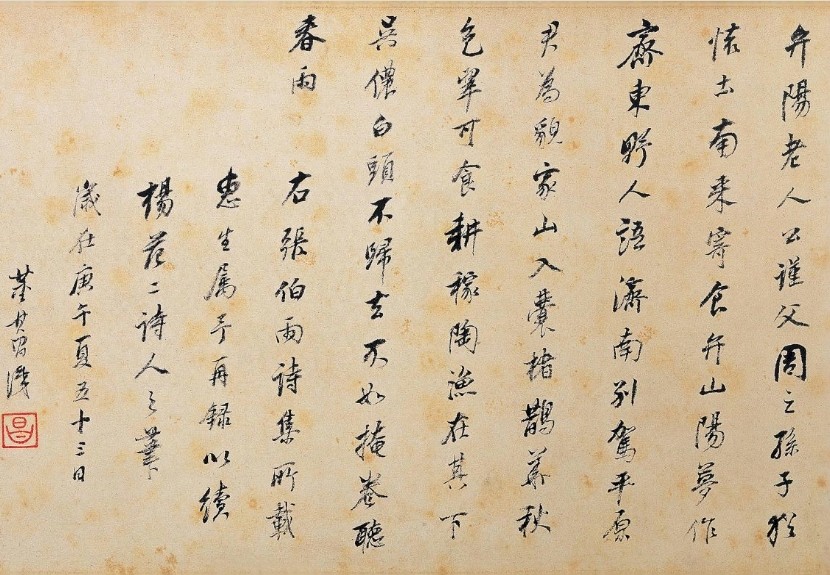 弁陽老人公謹父周之孫子猶
懷土南來寄食弁山陽夢作
齊東野人語濟南別駕平原
君為貌家山入囊楮鵲華秋
色翠可食耕稼陶漁在其下
吳儂白頭不歸去不如掩卷聽
春雨
右張伯雨詩集所載
惠生屬予再錄以續
楊范二詩人之筆
歲在庚午夏五十三日
董其昌識
昌